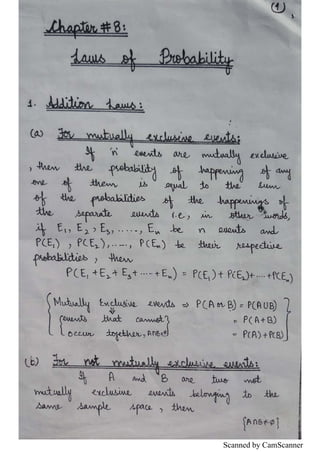 (1)
Chapter # 8:
Laws of Probability
1. Addition Laws:
(a) For mutually exclusive events:
If 'n' events are mutually exclusive
, then the probability of happening of any
one of them is equal to the sum
of the probabilities of the happenings of
the separate events i.e, in other words,
if E1, E2, E3, ....., En be n events and
P(E1), P(E2), ...., P(En) be their respective
probabilities, then
P(E1 + E2 + E3 + .... + En) = P(E1) + P(E2) + .... + P(En)
{Mutually Exclusive events ⇒ P(A or B) = P(A∪B)
{events that cannot} = P(A+B)
{occur together, A∩B=∅} = P(A) + P(B)}
(b) For not mutually exclusive events:
If A and B are two not
mutually exclusive events belonging to the
same sample space, then
{A∩B≠∅}
Scanned by CamScanner